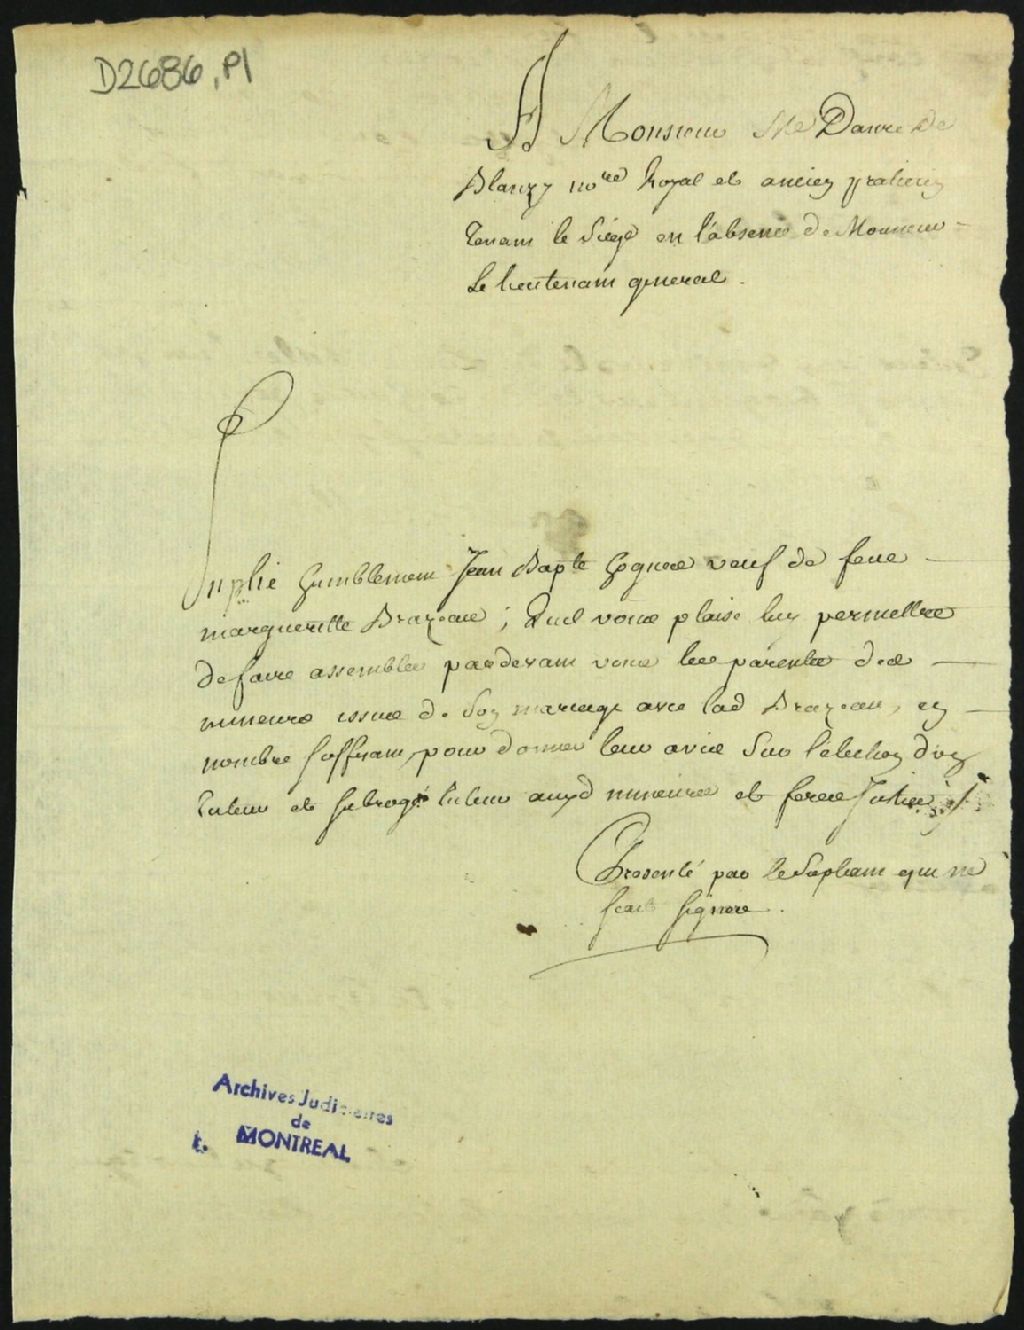 D2686, P1
A Monsieur Me Danré de
Blanzy nore Royal et ancien praticien
Tenant le Siége en l'absence de Monsieur
Le lieutenant general.
Suplie humblement Jean Bapte Gognere veuf de feue
margueritte Brazeau ; Quil vous plaise luy permettre
de faire assembler pardevant vous les parents des
mineurs issus de Son mariage avec lad Brazeau, en
nombre suffisant, pour donner leur avis Sur l'election d'un
Tuteur et subrogé tuteur auxd mineurs et ferez Justice ./.
Presenté par le Supliant qui ne
scait signer.
Archives Judiciaires
de
MONTREAL